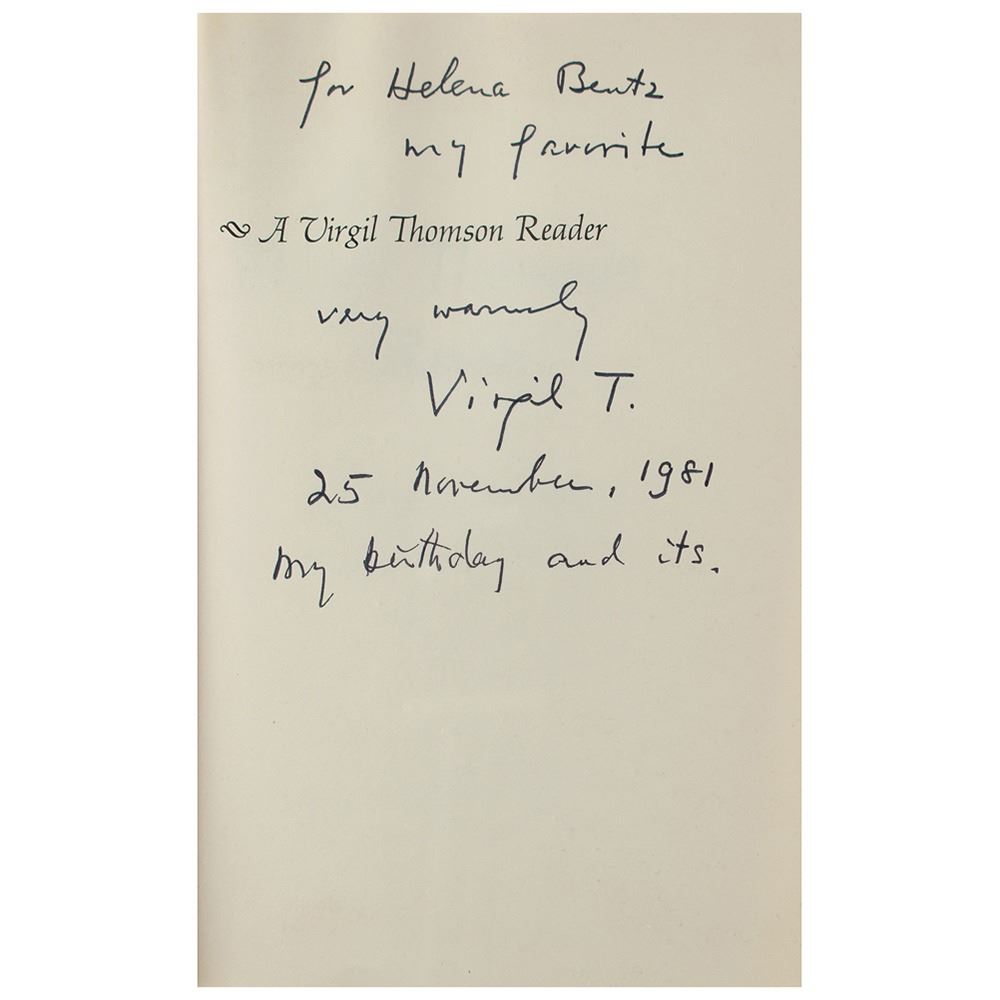 for Helena Bentz
my favorite
A Virgil Thomson Reader
very warmly
Virgil T.
25 November, 1981
my birthday and its.